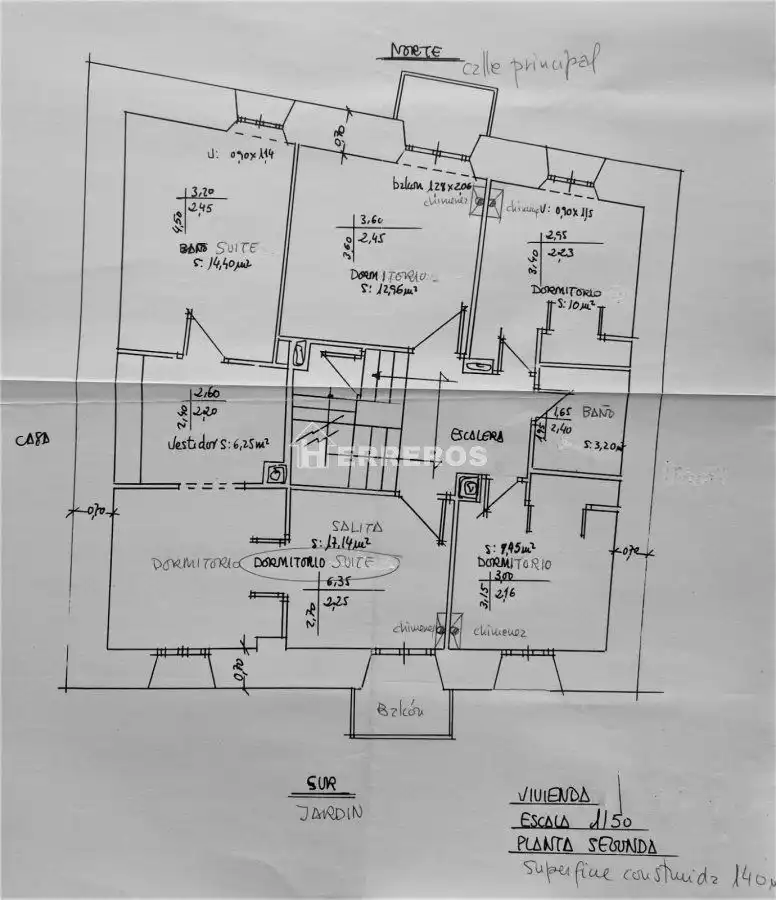 NORTE
calle principal
0,70
V: 0,90x1,14
balkon 1,28x2,06
chimenez
V: 0,90x1,15
3,20
4,50 2,45
BAÑO SUITE
S: 14,40 m²
3,60
3,60 2,45
DORMITORIO
S: 12,96 m²
2,95
3,40 2,23
DORMITORIO
S: 10 m²
2,60
2,40 2,20
Vestidor S: 6,25 m²
CASA
ESCALERA
1,65 BAÑO
1,95 2,40
S: 3,20 m²
HERREROS
0,70
SALITA
S: 17,14 m²
DORMITORIO DORMITORIO SUITE
6,35
2,70 2,25
S: 9,45 m²
DORMITORIO
3,00
3,15 2,16
0,70
chimenez
chimenez
0,70
Balkón
SUR
JARDIN
VIVIENDA
ESCALA 1/50
PLANTA SEGUNDA
superficie construida 140